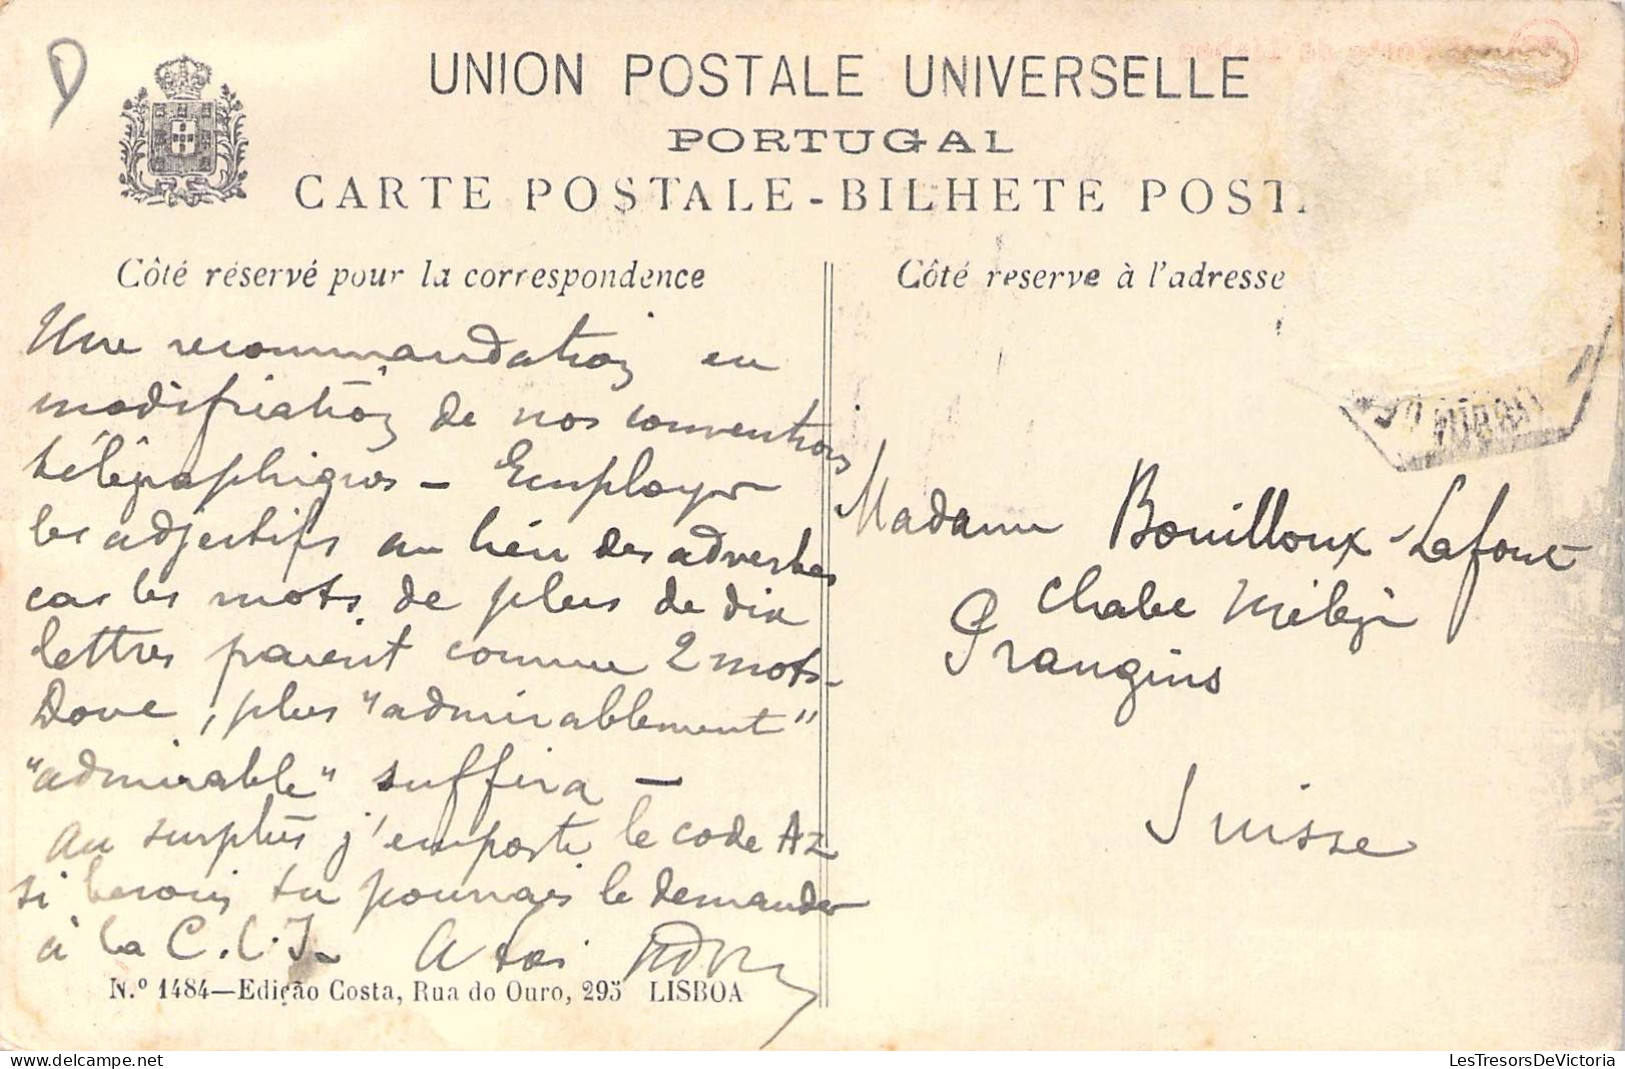 D
UNION POSTALE UNIVERSELLE
PORTUGAL
CARTE POSTALE-BILHETE POST
Côté réservé pour la correspondence
Côté reserve à l'adresse
Une recommandation en
modification de nos conventions
télégraphiques - Employer
les adjectifs au lieu des adverbes
car les mots de plus de dix
lettres paient comme 2 mots-
Donc, plus "admirablement"
"admirable" suffira -
Au surplus j'emporte le code AZ
si besoin tu pourrais le demander
à la C.I.J.
A toi
Madame Bouilloux-Lafont
Chalet
Prangins
Suisse
N.º 1484—Edição Costa, Rua do Ouro, 295 LISBOA
LesTresorsDeVictoria